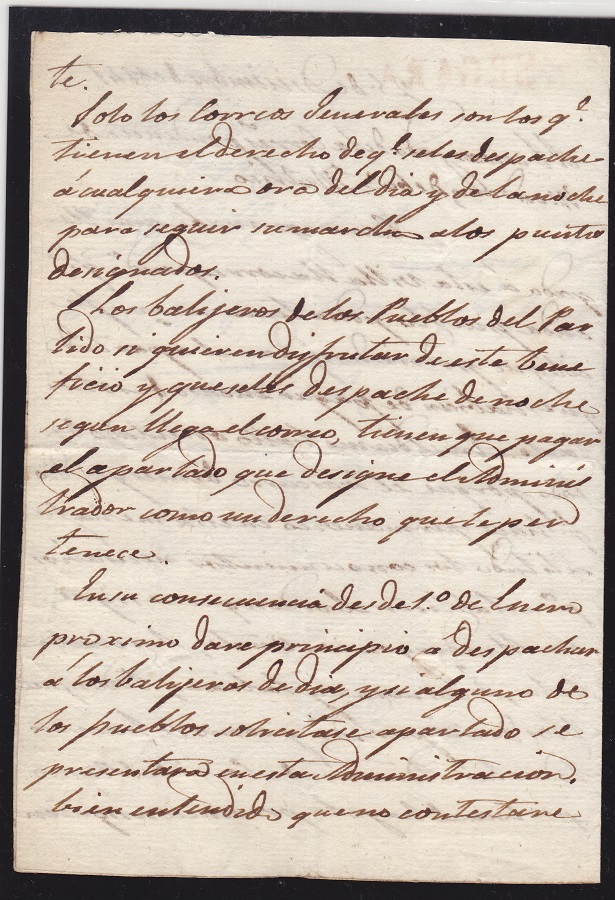 te.
Solo los Correos Generales son los q.e
tienen el derecho de q.e se les despache
á cualquiera ora del dia y de la noche
para seguir su marcha a los puntos
designados.
Los balijeros de los Pueblos del Par
tido si quieren disfrutar de este bene
ficio y que se les despache de noche
segun llega el correo, tienen que pagar
el apartado que designe el Adminis
trador como un derecho que le per
tenece.
En su consecuencia desde 1.o de Enero
proximo dare principio á despachar
á los balijeros de dia, y si alguno de
los pueblos solicitase apartado se
presentará en esta Administracion.
bien entendido que no contestare